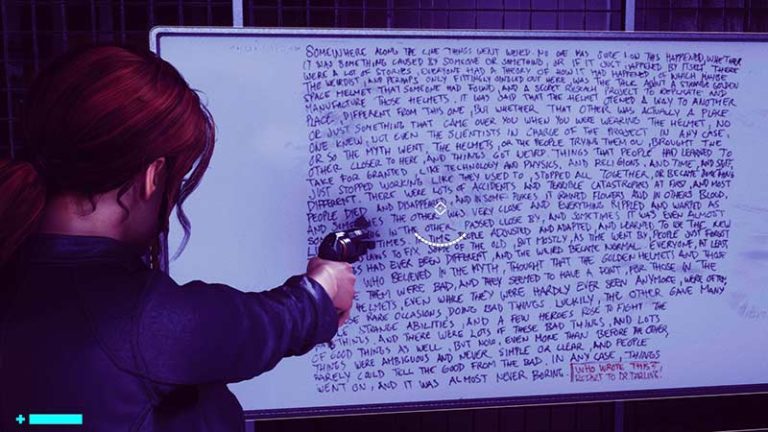 SOMEWHERE ALONG THE LINE THINGS WENT WEIRD. NO ONE WAS SURE HOW THIS HAPPENED, WHETHER
IT WAS SOMETHING CAUSED BY SOMEONE OR SOMETHING, OR IF IT JUST HAPPENED BY ITSELF. THERE
WERE A LOT OF STORIES, EVERYONE HAD A THEORY OF HOW IT HAD HAPPENED, OF WHICH MAYBE
THE WEIRDEST, AND PERHAPS ONLY FITTINGLY SO, WAS THE TALE ABOUT A STRANGE GOLDEN
SPACE HELMET THAT SOMEONE HAD FOUND, AND A SECRET RESEARCH PROJECT TO REPLICATE AND
MANUFACTURE THOSE HELMETS. IT WAS SAID THAT THE HELMET OPENED A WAY TO ANOTHER
PLACE, DIFFERENT FROM THIS ONE, BUT WHETHER THAT OTHER WAS ACTUALLY A PLACE
OR JUST SOMETHING THAT CAME OVER YOU WHEN YOU WERE WEARING THE HELMET, NO
ONE KNEW, NOT EVEN THE SCIENTISTS IN CHARGE OF THE PROJECT. IN ANY CASE,
OR SO THE MYTH WENT, THE HELMETS, OR THE PEOPLE TRYING THEM ON, BROUGHT THE
OTHER CLOSER TO HERE, AND THINGS GOT WEIRD. THINGS THAT PEOPLE HAD LEARNED TO
TAKE FOR GRANTED, LIKE TECHNOLOGY AND PHYSICS, AND RELIGIONS, AND TIME, AND SPACE,
JUST STOPPED WORKING LIKE THEY USED TO, STOPPED ALL TOGETHER, OR BECAME SOMETHING
DIFFERENT. THERE WERE LOTS OF ACCIDENTS AND TERRIBLE CATASTROPHES AT FIRST, AND MOST
PEOPLE DIED AND DISAPPEARED, AND IN SOME PLACES IT RAINED FLOWERS AND IN OTHERS BLOOD,
AND SOMETIMES THE OTHER WAS VERY CLOSE AND EVERYTHING RIPPLED AND WARPED AS
THE OTHER PASSED CLOSE BY, AND SOMETIMES IT WAS EVEN ALMOST
TIMES PEOPLE ADJUSTED AND ADAPTED, AND LEARNED TO USE THE NEW
TO FIX SOME OF THE OLD, BUT MOSTLY, AS TIME WENT BY, PEOPLE JUST FORGOT
HAD EVER BEEN DIFFERENT, AND THE WEIRD BECAME NORMAL. EVERYONE, AT LEAST
WHO BELIEVED IN THE MYTH, THOUGHT THAT THE GOLDEN HELMETS AND THOSE
THEM WERE BAD, AND THEY SEEMED TO HAVE A POINT, FOR THOSE IN THE
HELMETS, EVEN WHILE THEY WERE HARDLY EVER SEEN ANYMORE, WERE OFTEN,
RARE OCCASIONS, DOING BAD THINGS. LUCKILY, THE OTHER GAVE MANY
STRANGE ABILITIES, AND A FEW HEROES ROSE TO FIGHT THE
THINGS. AND THERE WERE LOTS OF THESE BAD THINGS, AND LOTS
OF GOOD THINGS AS WELL. BUT NOW, EVEN MORE THAN BEFORE THE OTHER,
THINGS WERE AMBIGUOUS AND NEVER SIMPLE OR CLEAR, AND PEOPLE
RARELY COULD TELL THE GOOD FROM THE BAD. IN ANY CASE, THINGS
WENT ON, AND IT WAS ALMOST NEVER BORING.
WHO WROTE THIS?
REPORT TO DR DARLING!